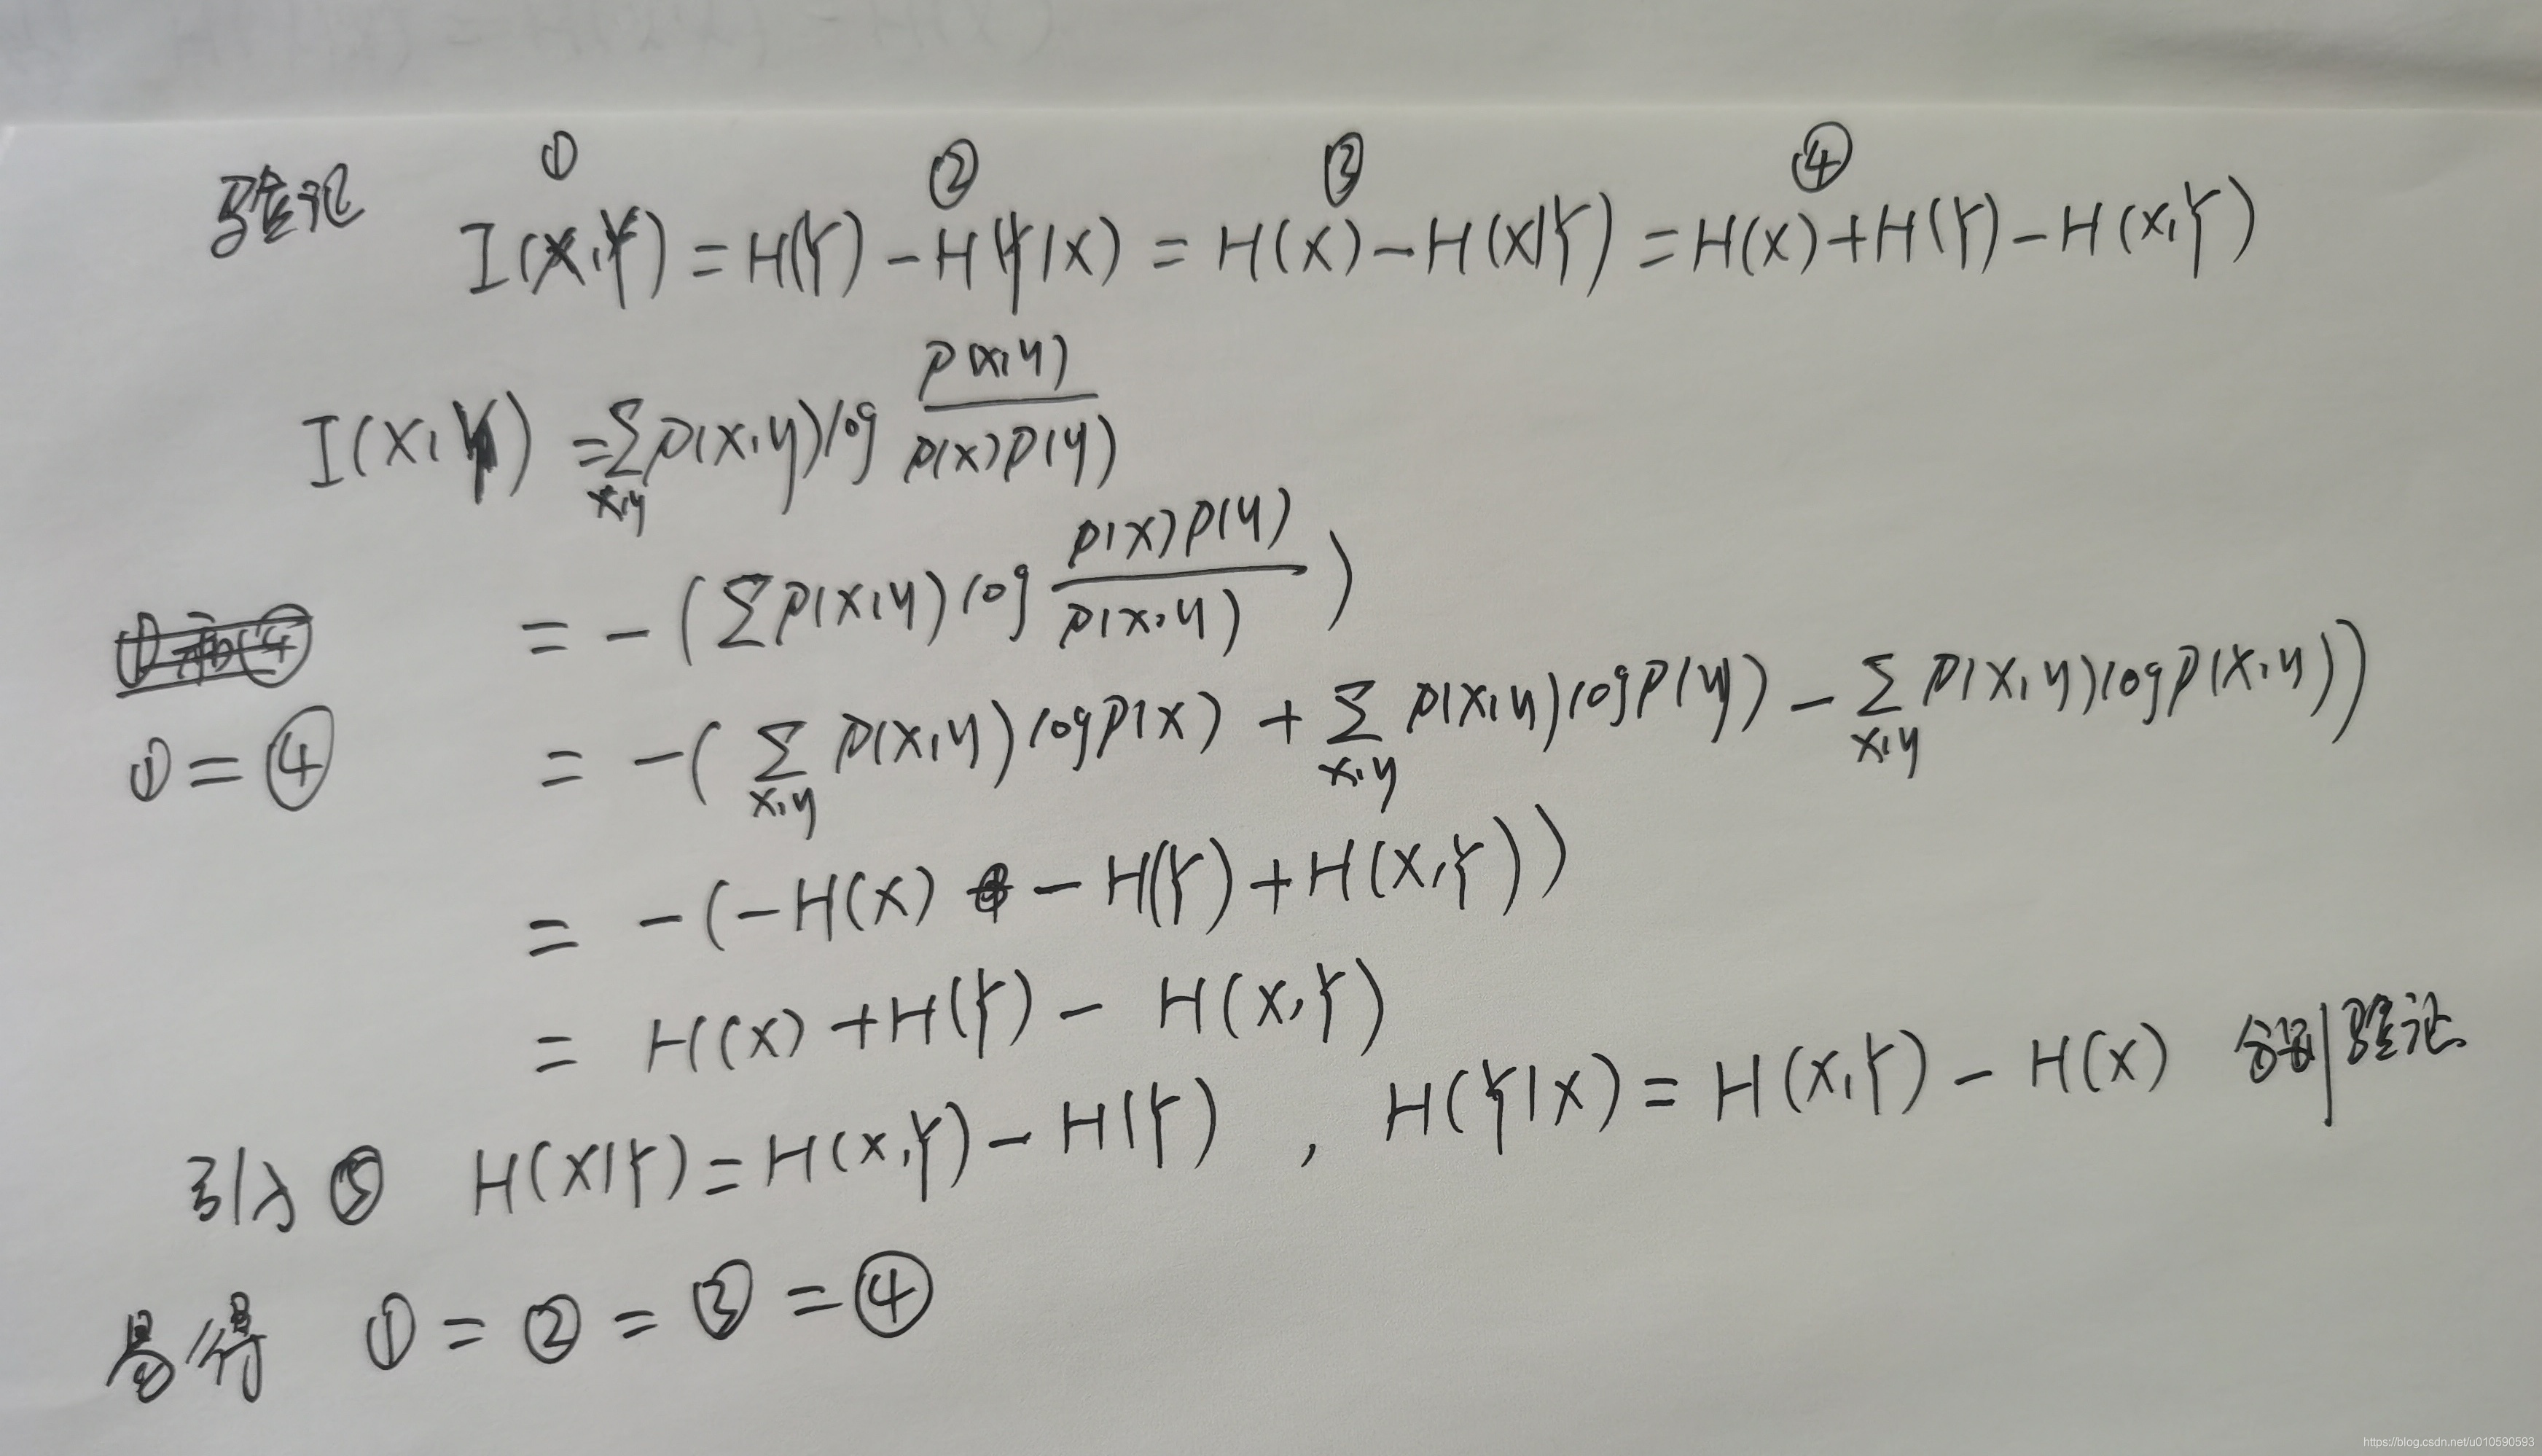 ① ② ③ ④
验证 I(X,Y) = H(Y) - H(Y|X) = H(X) - H(X|Y) = H(X) + H(Y) - H(X,Y)
I(X,Y) = ∑_{x,y} p(x,y) log \frac{p(x,y)}{p(x)p(y)}
①和④ = -(∑ p(x,y) log \frac{p(x)p(y)}{p(x,y)})
①=④ = -(∑_{x,y} p(x,y) log p(x) + ∑_{x,y} p(x,y) log p(y) - ∑_{x,y} p(x,y) log p(x,y))
= -(-H(X) - H(Y) + H(X,Y))
= H(X) + H(Y) - H(X,Y)
引入⑤ H(X|Y) = H(X,Y) - H(Y) , H(Y|X) = H(X,Y) - H(X) 分别验证
易得 ① = ② = ③ = ④
https://blog.csdn.net/u010590593